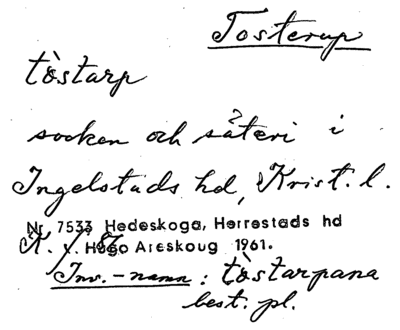 Tosterup
tòstarp
socken och säteri i
Ingelstads hd, Krist. l.
Nr 7533 Hedeskoga, Herrestads hd
Hugo Areskoug 1961.
Inv.-namn: tòstarpana
best. pl.